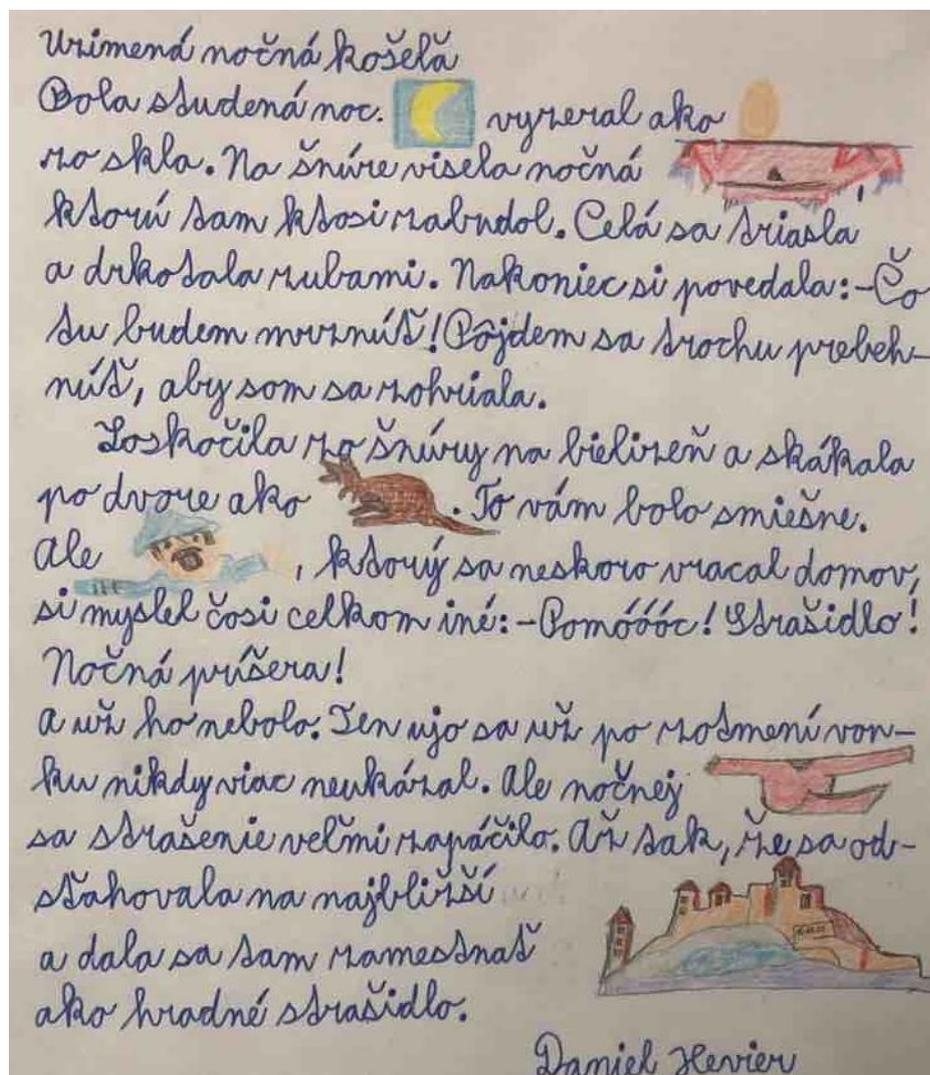 Uzimená nočná košeľa
Bola studená noc. vyzeral ako
zo skla. Na šnúre visela nočná ,
ktorú tam ktosi zabudol. Celá sa triasla
a drkotala zubami. Nakoniec si povedala: -Čo
tu budem mrznúť! Pôjdem sa trochu prebeh-
núť, aby som sa zohriala.
Zoskočila zo šnúry na bielizeň a skákala
po dvore ako . To vám bolo smiešne.
Ale , ktorý sa neskoro vracal domov,
si myslel čosi celkom iné: -Pomóóóc! Strašidlo!
Nočná príšera!
A už ho nebolo. Ten ujo sa už po zotmení von-
ku nikdy viac neukázal. Ale nočnej
sa strašenie veľmi zapáčilo. Až tak, že sa od-
sťahovala na najbližší
a dala sa tam zamestnať
ako hradné strašidlo.
Daniel Hevier